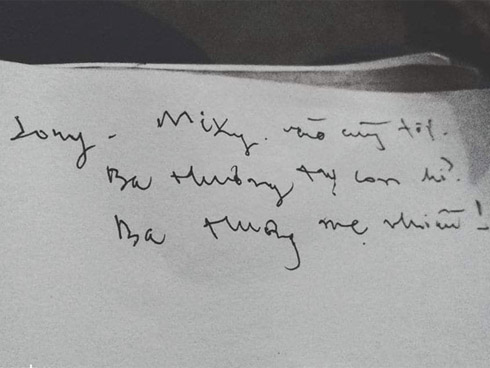 Long - Miky. vô cùng tốt.
Ba thương các con hỉ?
Ba thương mẹ nhiều!